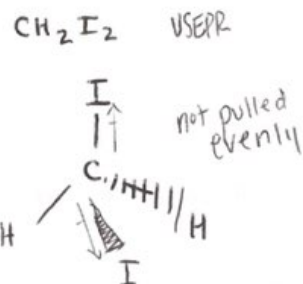 CH2I2 VSEPR
I
not pulled
evenly
C
H
H
I